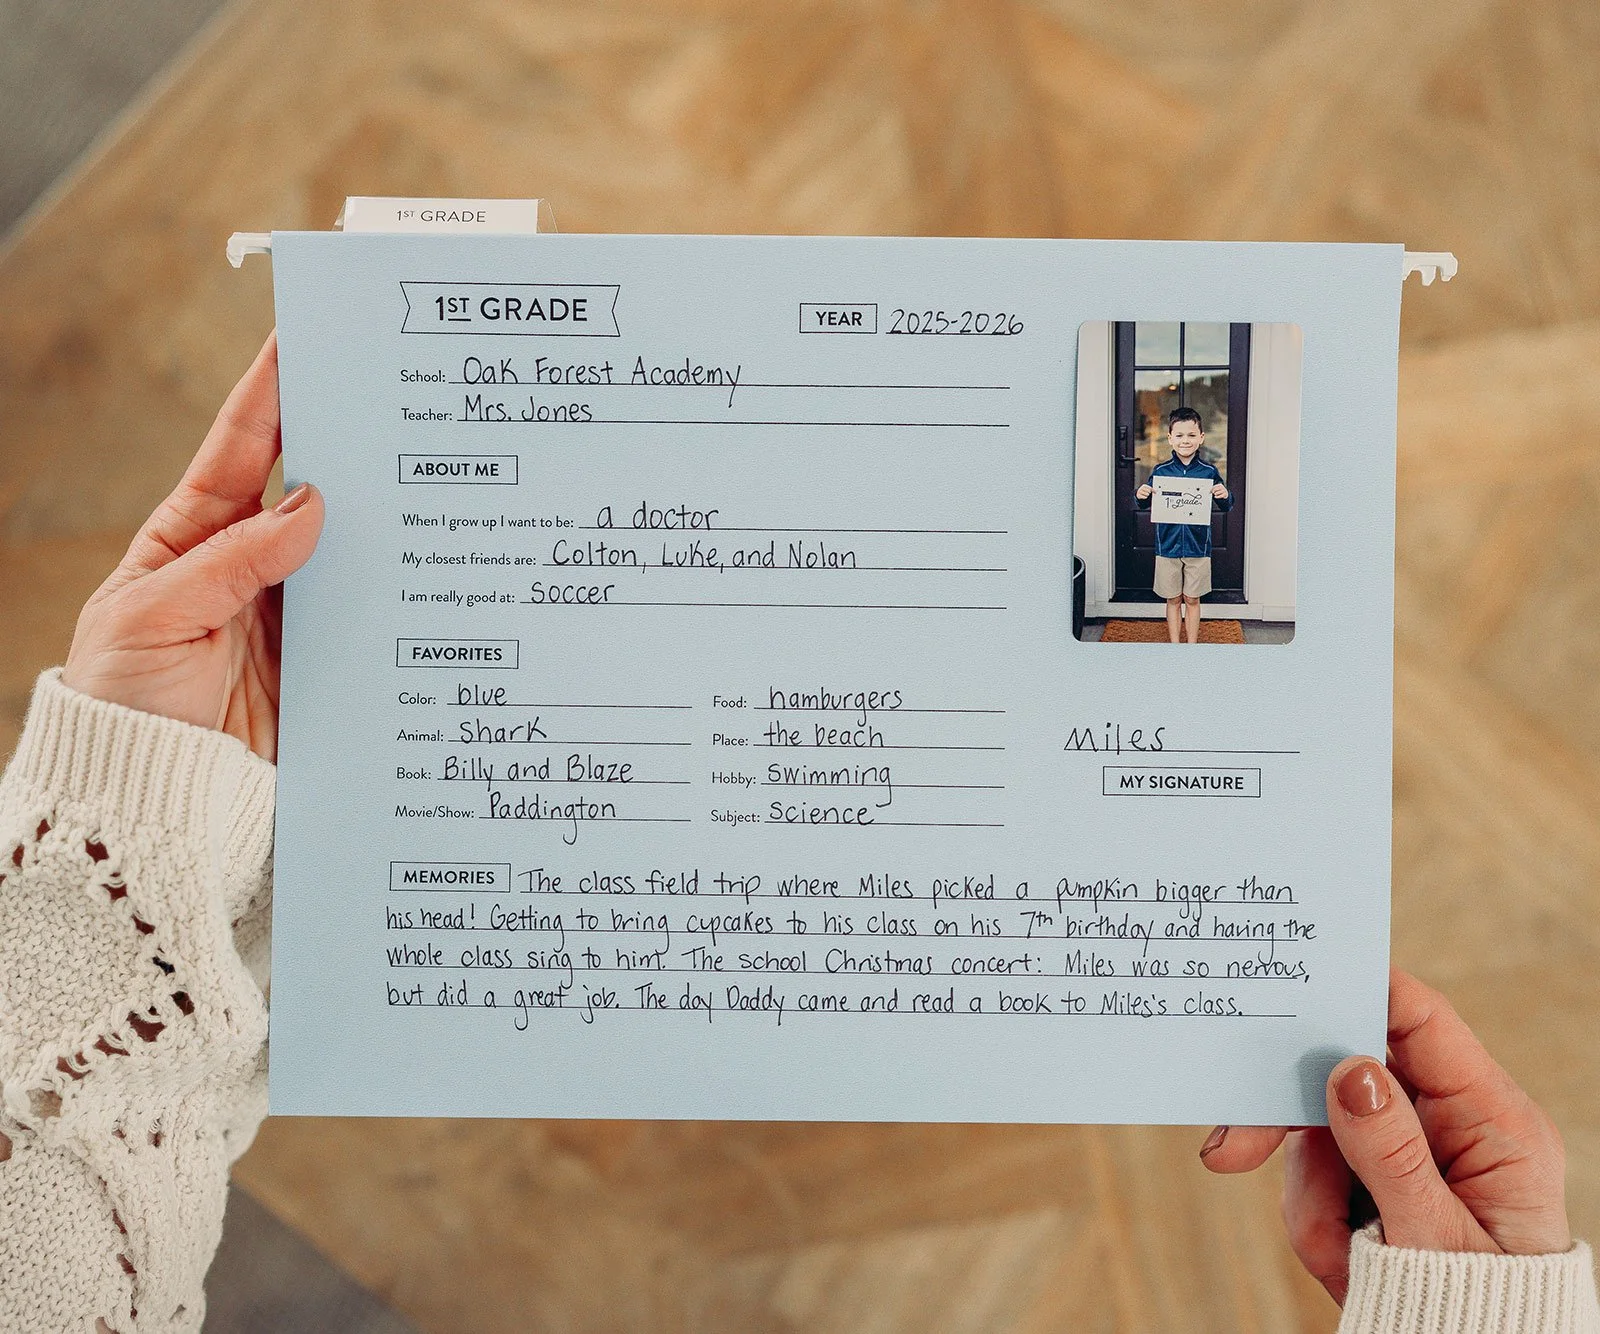 1ST GRADE
1ST GRADE
YEAR 2025-2026
School: Oak Forest Academy
Teacher: Mrs. Jones
1st grade
ABOUT ME
When I grow up I want to be: a doctor
My closest friends are: Colton, Luke, and Nolan
I am really good at: soccer
FAVORITES
Color: blue
Food: hamburgers
Animal: shark
Place: the beach
Book: Billy and Blaze
Hobby: swimming
Movie/Show: Paddington
Subject: science
Miles
MY SIGNATURE
MEMORIES The class field trip where Miles picked a pumpkin bigger than
his head! Getting to bring cupcakes to his class on his 7th birthday and having the
whole class sing to him. The school Christmas concert: Miles was so nervous,
but did a great job. The day Daddy came and read a book to Miles's class.